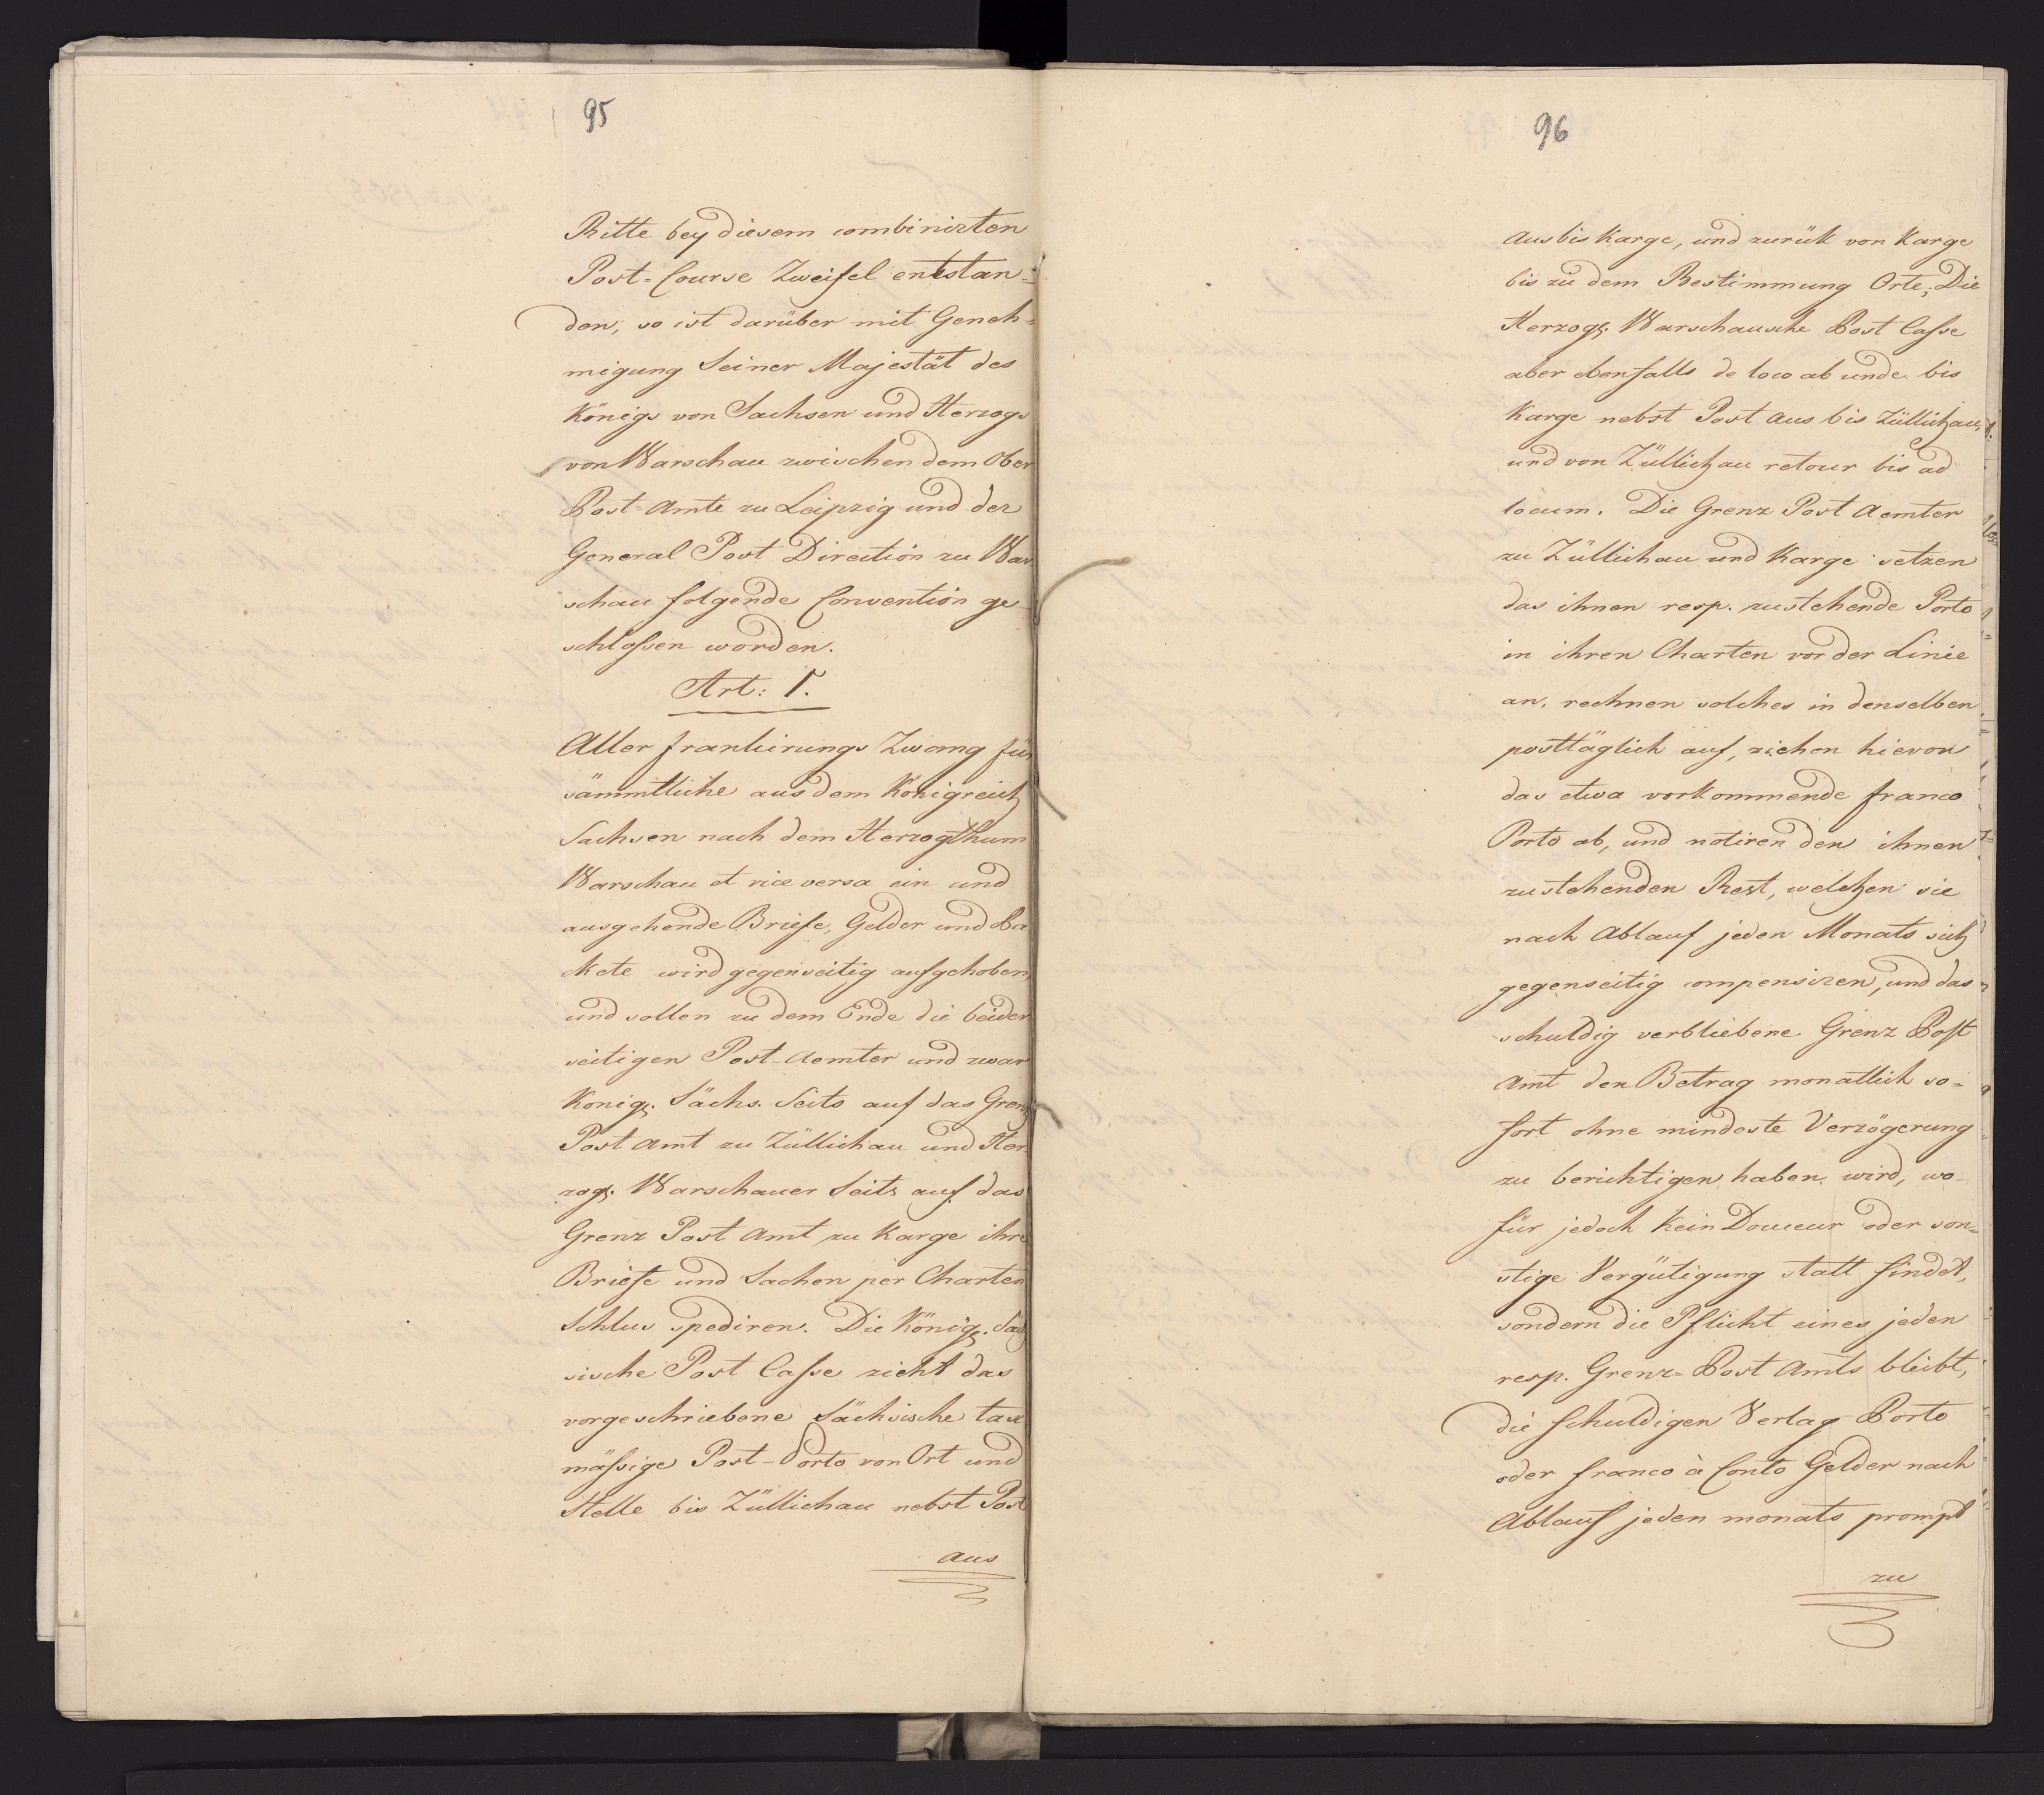 95
Ritte bey diesem combinirten
Post=Course Zweifel entstan=
den, so ist darüber mit Geneh=
migung Seiner Majestät des
Königs von Sachsen und Herzogs
von Warschau zwischen dem Ober
Post=Amte zu Leipzig und der
General Post Direction zu War
schau folgende Convention ge
schlossen worden.
Art: I.
Aller frankirungs Zwang für
sämmtliche aus dem Königreich
Sachsen nach dem Herzogthum
Warschau et vice versa ein und
ausgehende Briefe, Gelder und Pa
ckete wird gegenseitig aufgehoben,
und sollen zu dem Ende die beider
seitigen Post-Aemter und zwar
Königl. Sächs. Seits auf das Grenz
Post Amt zu Züllichau und Her
zogl. Warschauer Seits auf das
Grenz Post Amt zu Karge ihre
Briefe und Sachen per Charten
Schlus spediren. Die Königl. Säch
sische Post Casse zieht das
vorgeschriebene Sächsische tax
mässige Post-Porto von Ort und
Stelle bis Züllichau nebst Post
aus
96
Aus bis Karge, und zurük von Karge
bis zu dem Bestimmung Orte; Die
Herzogl. Warschausche Post Casse
aber ebenfalls de loco ab unde bis
Karge nebst Post Aus bis Züllichau,
und von Züllichau retour bis ad
locum. Die Grenz Post Aemter
zu Züllichau und Karge setzen
das ihnen resp. zustehende Porto
in ihren Charten vor der Linie
an, rechnen solches in denselben
posttäglich auf, ziehen hievon
das etwa vorkommende franco
Porto ab, und notiren den ihnen
zustehenden Rest, welchen sie
nach Ablauf jeden Monats sich
gegenseitig compensiren, und das
schuldig verbliebene Grenz Post
Amt den Betrag monatlich so=
fort ohne mindeste Verzögerung
zu berichtigen haben wird, wo
für jedoch kein Douceur oder son=
stige Vergütigung statt findet,
sondern die Pflicht eines jeden
resp. Grenz=Post Amts bleibt,
die schuldigen Verlag Porto
oder franco à Conto Gelder nach
Ablauf jeden monats prompt
zu